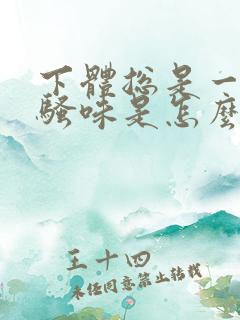 下體總是一
騷味是怎麼
王十四
未经同意禁止转载